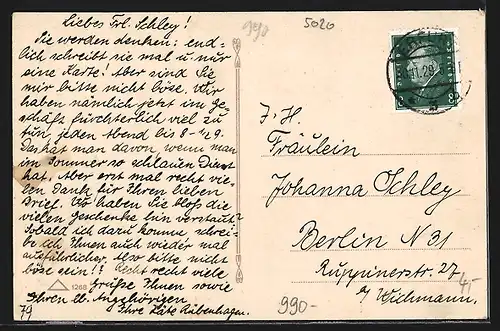 Liebes Frl. Schley!
Sie werden denken: end-
lich schreibt sie mal u. nur
eine Karte! Aber sind Sie
mir bitte nicht böse. Wir
haben nämlich jetzt im Ge-
schäft fürchterlich viel zu
tun, jeden Abend bis 8-½9.
Das hat man davon, wenn man
im Sommer so schlauen Dienst
hat. Aber erst mal recht vie-
len Dank für Ihren lieben
Brief. Wo haben Sie bloß die
vielen Geschenke hin verstaut?
Sobald ich dazu komme schrei-
be ich Ihnen auch wieder mal
ausführlicher. Also bitte nicht
böse sein!? Recht recht viele
Grüße Ihnen sowie
Ihren lb. Angehörigen
Ihre Käte Rübenhagen.
79
1268
990
5020
.11.29
8
8
I. H.
Fräulein
Johanna Schley
Berlin N 31
Ruppinerstr. 27
b/ Wichmann.
45
990-